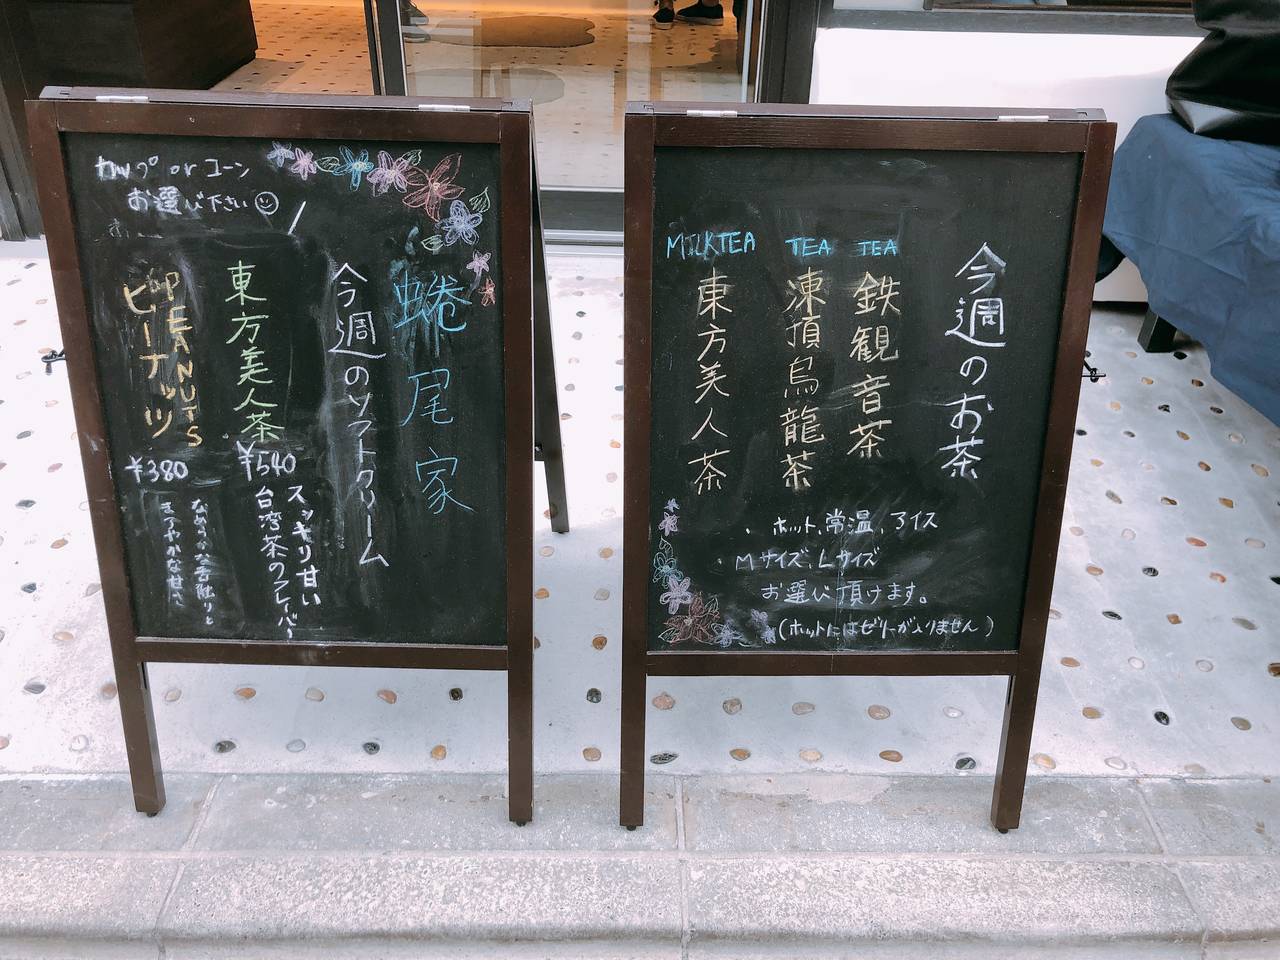 カップ or コーン
お選び下さい
蜷尾家
今週のソフトクリーム
東方美人茶
¥540
スッキリ甘い
台湾茶のフレイバー
PEANUTS
ピーナッツ
¥380
なめらかな舌触りと
まろやかな甘さ
今週のお茶
TEA
鉄観音茶
TEA
凍頂烏龍茶
MILKTEA
東方美人茶
・ホット、常温、アイス
・Mサイズ、Lサイズ
お選び頂けます。
(ホットにはゼリーが入りません)